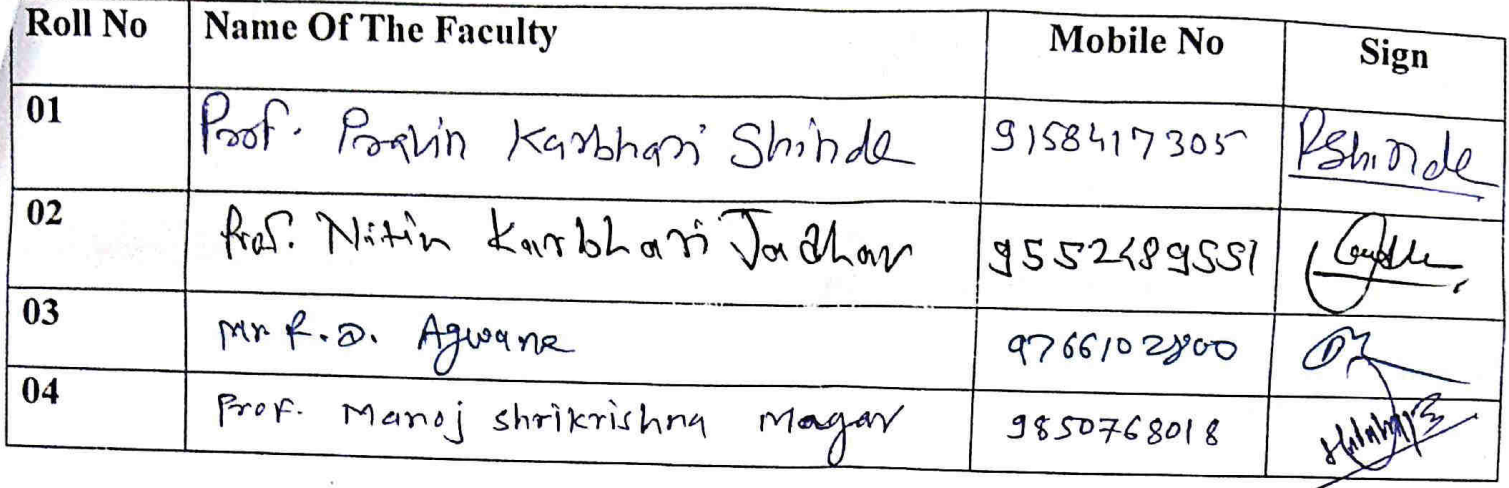 Roll No Name Of The Faculty Mobile No Sign
01 Prof. Pravin Karbhari Shinde 9158417305 PShinde
02 Prof. Nitin Karbhari Jadhav 9552489551
03 Mr R.D. Agwane 9766102800
04 Prof. Manoj shrikrishna Magar 9850768018